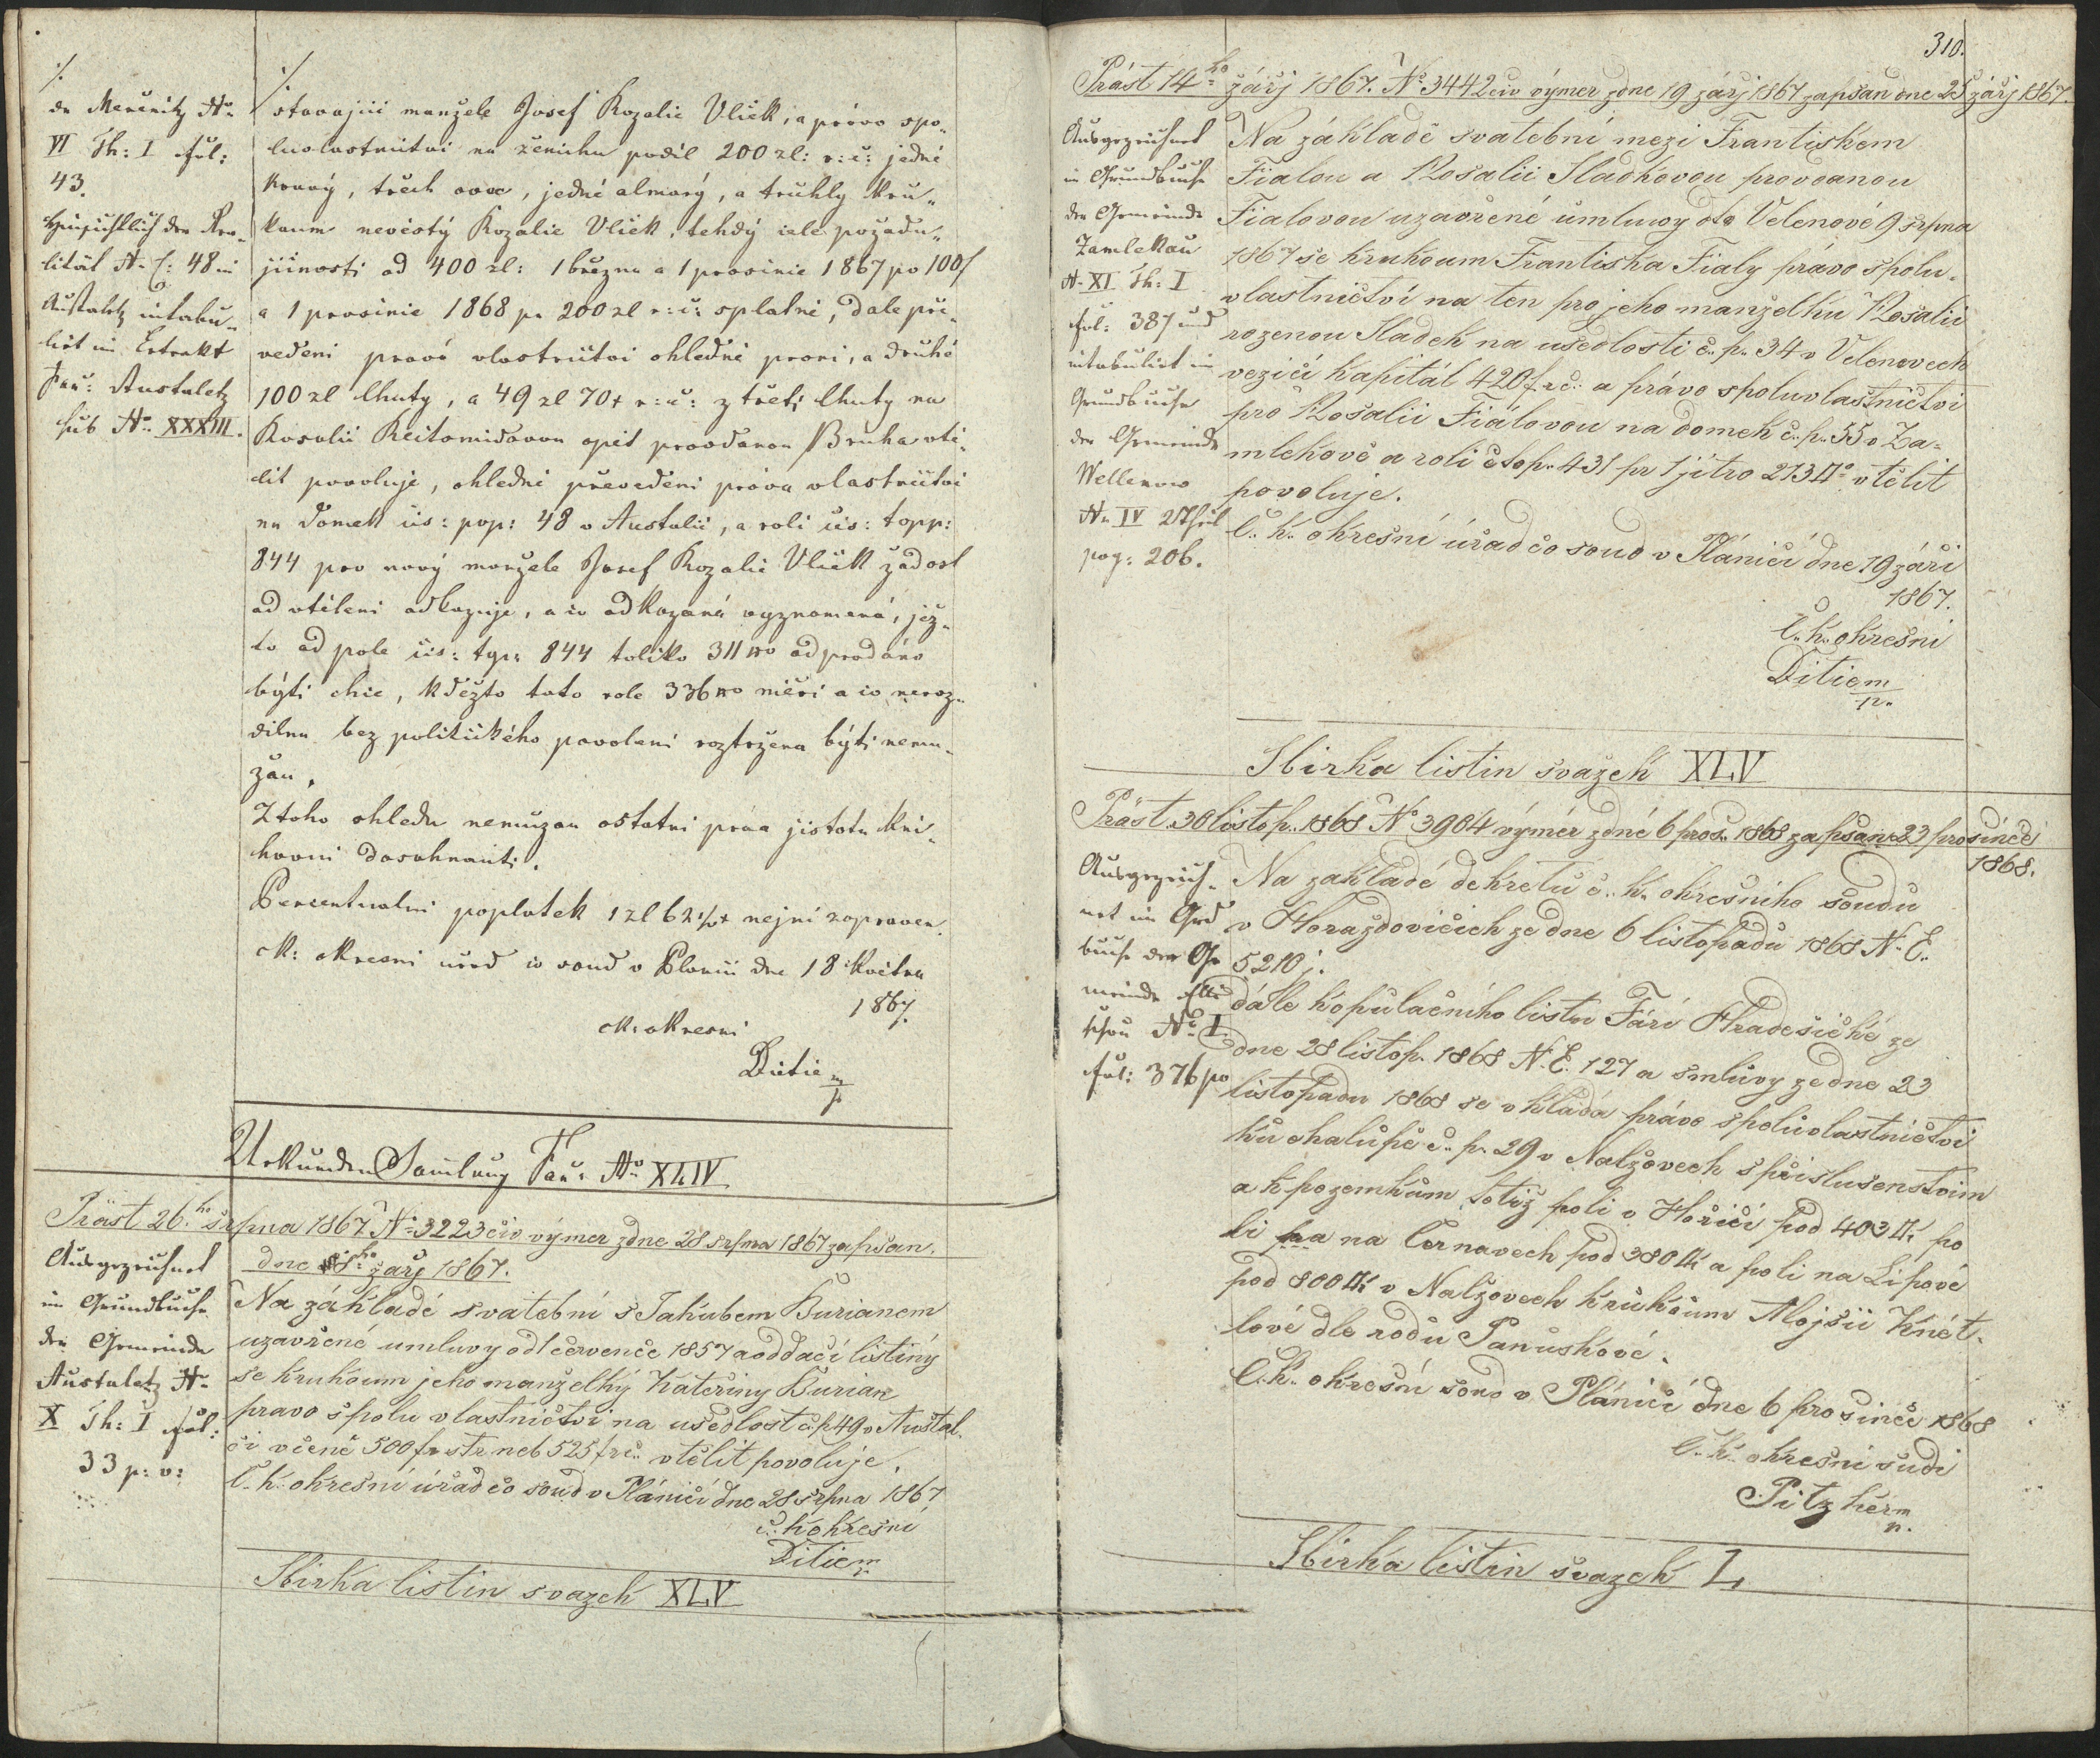 ·/.
de Merčnitz No
VI Th: I fol:
43.
hinsichtlich der Rea„
lität N. C: 48 in
Austaletz intabu„
lirt im Extrakt
Faů: Austaletz
sub No XXXIII.
·/.
stavajici manžele Josef Rozalie Vliek, a právo spo„
luvlastnictvi na ženichu podíl 200 zl: r: č: jedné
kravý, třech ovce, jedné almarý, a truhly kru„
haum nevěstý Rozalie Vliek, tehdý cele požadu„
jicnosti od 400 zl: 1 března a 1 prosince 1867 po 100f
a 1 prosince 1868 pr 200 zl r: č: splatné, dale pře„
vedeni pravo vlastnictvi ohledně prvni, a druhé
100 zl lhuty, a 49 zl 70x r: č: z třetj lhuty na
Rosalii Reitomidavou opět provdanou Bruha vtě„
lit povoluje, ohledně převedeni práva vlastnictvi
na domek čis: pop: 48 v Austalci, a roli čis: topp:
844 pro nový manžele Josef Rozalie Vliek žadost
od vtěleni odkazuje, a co odkazaná vyznamená, jež„
to od pole čis: top: 844 toliko 311 □o odprodáno
býti chce, kdežto tato role 336 □o měři a co neroz„
dilna bez politického povoleni roztržena býti nemu„
žau.
Z toho ohledu nemužou ostatni práva jistotu kni„
hovni dosahnauti.
Percentualni poplatek 1 zl 62½x nejni zapraven.
ck: okresni uřad co soud v Planici dne 18 května
1867.
ck: okresni
Ditie
m/p
Urkunden Samlung Faů: No XLIV
Präst 26.ho srpna 1867 No 3223 civ výmer z dne 28 srpna 1867 zapsan.
dne 5ho zářj 1867.
Ausgezeichnet
im Grundbuche
der Gemeinde
Austaletz No
X Th: I fol:
33 p: v:
Na základé svatební s Jakubem Burianem
uzavřené umluvy od 1 července 1857 a oddací listiný
se kruhoum jeho manželký Kateřiny Burian
pravo spolu vlastnictvi na usedlost č. p 49 v Austal„
ci v ceně 500 f v stř. neb 525 f r č. vtělit povoluje.
C. k. okresní úřad co soud v Plánicí dne 28 srpna 1867
c. k okresní
Ditie m/p
Sbirka listin svazek XLV
310.
Präst 14.ho zářj 1867. No 3442 civ výmer z dne 19 zářj 1867 zapsan dne 25 zářj 1867.
Ausgezeichnet
im Grundbuche
der Gemeinde
Zamlekau
N. XI Th: I
fol: 387 und
intabulirt im
Grundbuche
der Gemeinde
Wellenow
N. IV 2 Theil
pag: 206.
Na základě svatební mezi Frantiskem
Fialou a Rosalii Sladkovou provdanou
Fialovou uzavřené umluvy dto Velenové 9 srpna
1867 se kruhoum Frantiska Fialy právo spolu„
vlastnictví na ten pro jeho manželku Rosalii
rozenou Sladek na usedlosti č. p. 34 v Velenovech
vezicí kapitál 420 f. r č. a právo spoluvlastnictvi
pro Rosalii Fiálovou na domek č. p. 55 v Za„
mlekově a roli č. top. 431 pr 1 jitro 213 □o vtělit
povoluje.
C. k. okresní úřad co soud v Plánicí dne 19 zářj
1867.
C. k. okresní
Ditie m/p.
Sbirka listin svazek XLV
Präst. 30 listop. 1868 No 3904 výmér z dné 6 pros. 1868 zapsan 23 prosince
1868.
Ausgezeich„
net im Grd
buche der Ge
meinde Elli
schau No I
fol: 376 po
Na zakladé dekretu c. k. okresniho soudu
v Horaždovicich ze dne 6 listopadu 1868 N. E.
5210 j.
dále kopulačniho listu Fári Hradesické ze
dne 28 listop. 1868 N. E. 127 a smluvy ze dne 23
listopadu 1868 se vkladá právo spoluvlastnictvi
ku chalupě č. p. 29 v Nalžovech s přislusenstvim
a k pozemkům totiž poli v Hořicí pod 403 □i po
li na Cernavech pod 380 □i a poli na Lipové
pod 800 □i v Nalžovech kruhoum Alojsii Knét„
lové dle rodu Panuskové.
C. k. okresní soud v Plánicí dne 6 prosince 1868
C. k. okresní sudi
Pitzker m
p.
Sbirka listin svazek L